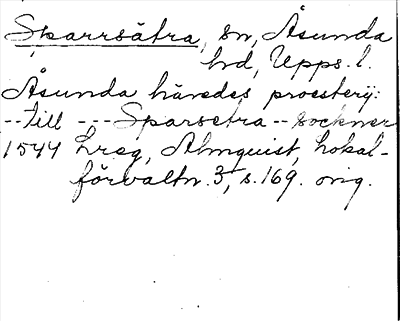 Sparrsätra, sn, Åsunda
hd, Upps. l.
Åsunda häredes proesterij:
--till ---Sparsetra--sockner
1544 Lreg, Almquist, Lokal-
förvaltn. 3, s. 169. orig.